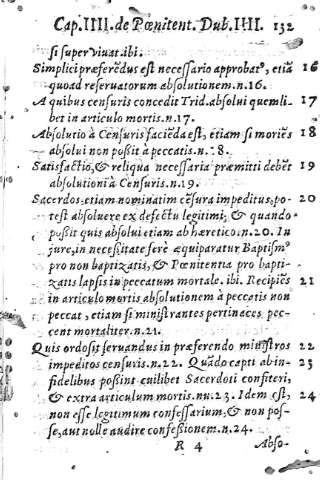 Cap. IIII. de Pœnitent. Dub. IIII. 132
si supervivat. ibi.
Simplici præferẽdus est necessario approbatꝰ, etiã 16
quoad reservatorum absolutionem. n. 16.
A quibus censuris concedit Trid. absolui quemli- 17
bet in articulo mortis. n. 17.
Absolutio à Censuris faciẽda est, etiam si moriẽs 18
absolui non possit à peccatis. n. 18.
Satisfactio, & reliqua necessaria præmitti debẽt 19
absolutioni à Censuris. n. 19.
Sacerdos etiam nominatim cẽsura impeditus, po- 20
test absoluere ex defectu legitimi; & quando
possit quis absolui etiam ab hæretico. n. 20. In
jure, in necessitate ferè æquiparatur Baptismꝰ
pro non baptizatis, & Pœnitentia pro bapti-
zatis lapsis in peccatum mortale. ibi. Recipiẽs 21
in articulo mortis absolutionem à peccatis non
peccat, etiam si ministrantes pertinaces pec-
cent mortaliter. n. 21.
Quis ordo sit servandus in præferendo ministros 22
impeditos censuris. n. 22. Quãdo capti ab in- 23
fidelibus possint cuilibet Sacerdoti confiteri,
& extra articulum mortis. nu. 23. Idem est, 24
non esse legitimum confessarium, & non pos-
se, aut nolle audire confessionem. n. 24.
R 4 Abso-